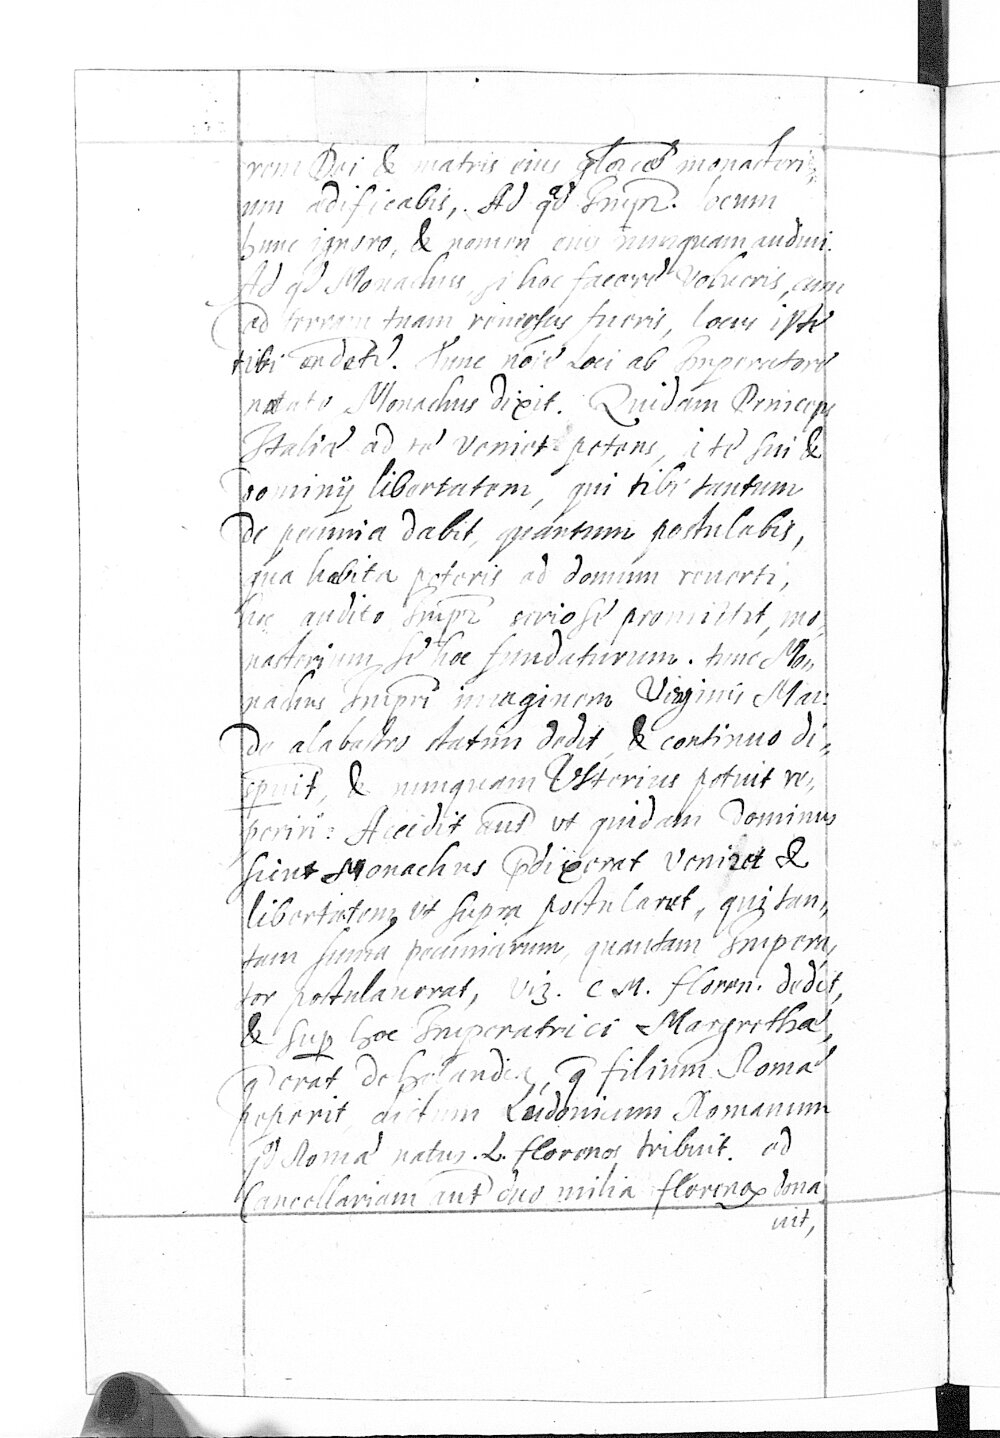 rem Dei & matris eius gloriose monasteri-
um ædificabis, Ad qd Impr. locum
hunc ignoro, & nomen eius nunquam audivi.
Ad qd Monachus, si hoc facere volueris, cum
ad terram tuam reuersus fueris, locus iste
tibi ondeté. Tunc noie Loci ab Imperatore
notato Monachus dixit. Quidam Princeps
Italiæ ad te veniet petens, a te sui &
Dominij libertatem, qui tibi tantum
de pecunia dabit, quantum postulabis,
qua habita poteris ad domum reuerti,
hoc audito Impr seriose promittit, mo,
nasterium se hoc fundaturum. tunc Mo,
nachus Impri imaginem Virginis Mar:
De alabastro statim dedit & continuo di,
sparuit, & nunquam Vlterius potuit re,
periri: Accidit aut vt quidam Dominus
sicut Monachus pdixerat veniret &
libertatem vt supra postularet, qui tan,
tam suma pecuniarum, quantam Impera,
tor postulauerat, viz. C M. floren. dedit,
& sup hoc Imperatrici Margrethæ,
q erat de holandia, q filium Romæ
peperit dictum Ludouicum Romanum
qd Romæ natus. L. florenos tribuit. ad
Cancellariam aut duo milia florenox dona
uit,